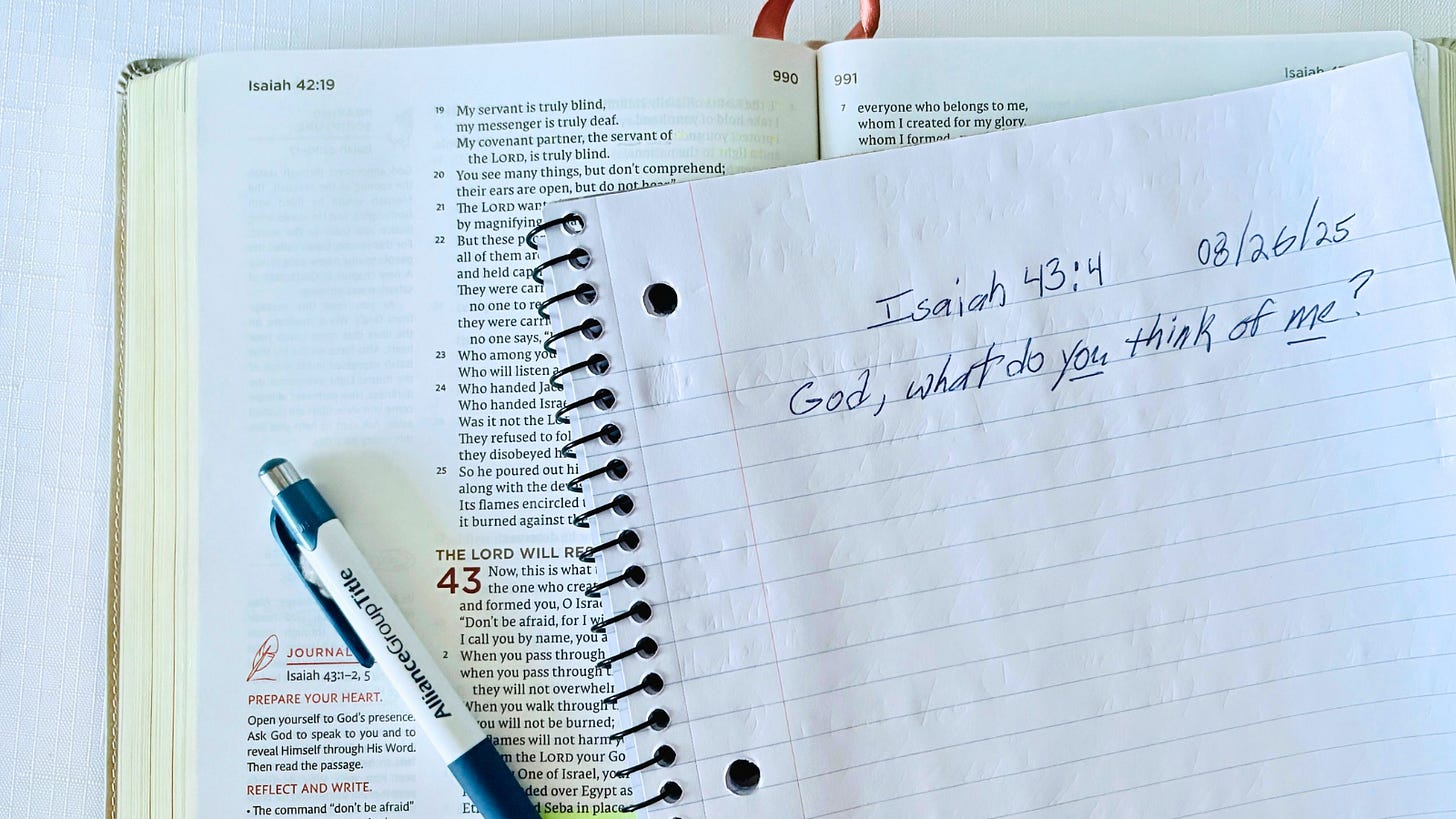 Isaiah 42:19
990
19 My servant is truly blind,
my messenger is truly deaf.
My covenant partner, the servant of
the LORD, is truly blind.
20 You see many things, but don't comprehend;
their ears are open, but do not hear."
21 The LORD
by magnifying
22 But these
all of them
and held
They were
no one to
they were
no one says,
23 Who among you
Who will listen
24 Who handed
Who handed
Was it not the
They refused to
they disobeyed
25 So he poured out
along with the
Its flames encircled
it burned against
THE LORD WILL
43 Now, this is what
the one who
and formed you, O
"Don't be afraid, for I
I call you by name, you
2 When you pass through
when you pass through
they will not
When you walk through
you will not be burned;
flames will not harm
the LORD your
One of Israel,
over Egypt as
Seba in place
JOURNAL
Isaiah 43:1–2, 5
PREPARE YOUR HEART.
Open yourself to God's presence.
Ask God to speak to you and to
reveal Himself through His Word.
Then read the passage.
REFLECT AND WRITE.
• The command "don't be afraid"
AllianceGroupTitle
991
Isaiah
7 everyone who belongs to me,
whom I created for my glory.
whom I formed
Isaiah 43:4 08/26/25
God, what do you think of me?